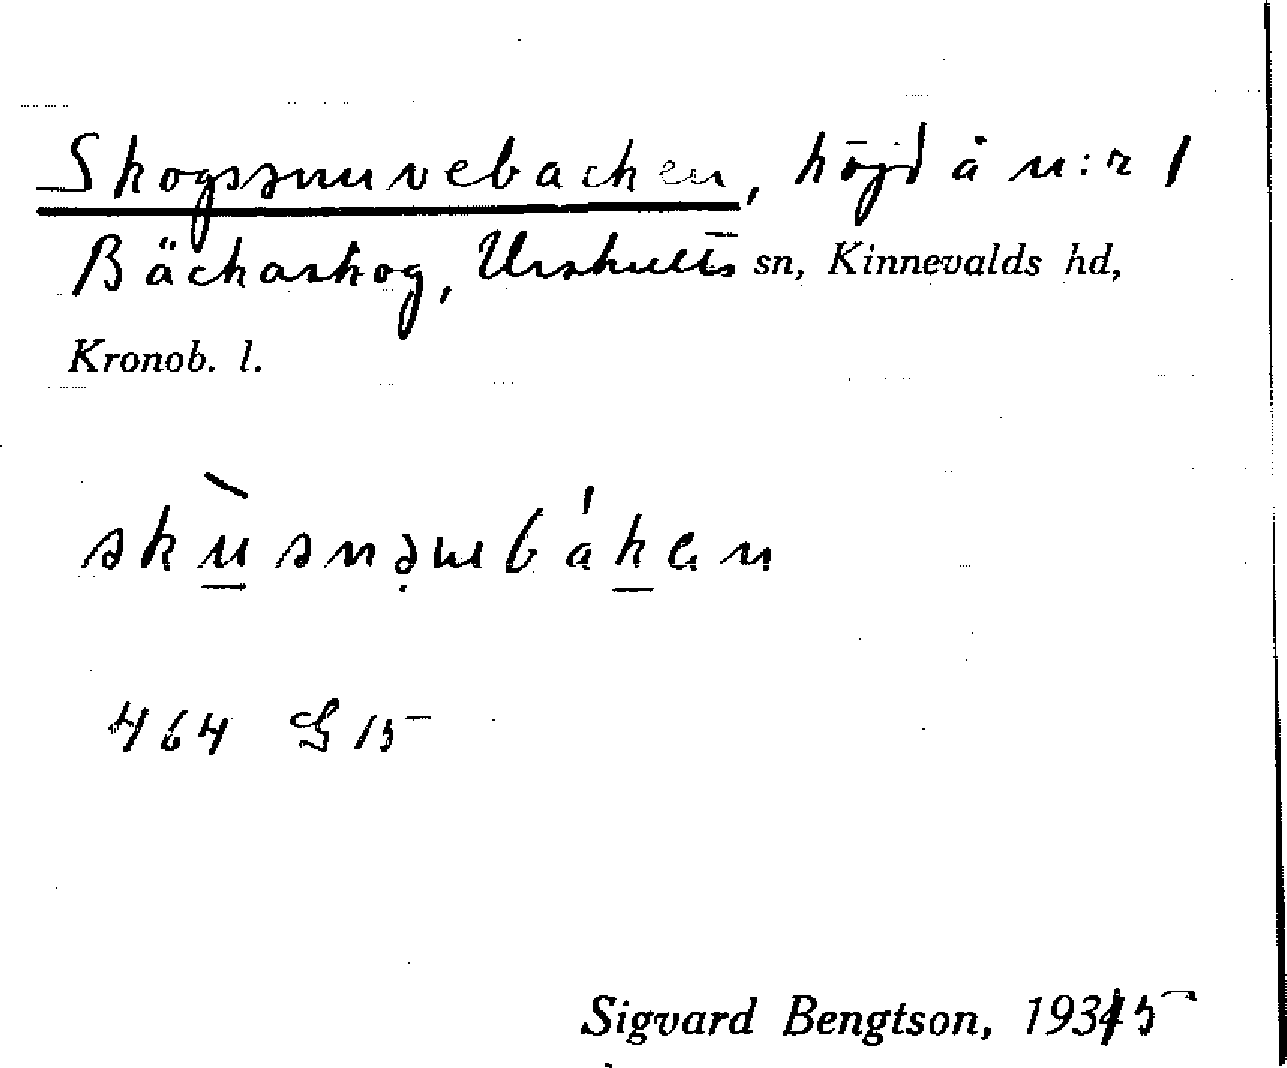 Skogssnuvebacken, höjd å n:r 1
Bäckaskog, Urshults sn, Kinnevalds hd,
Kronob. l.
464 G 15
Sigvard Bengtson, 1935